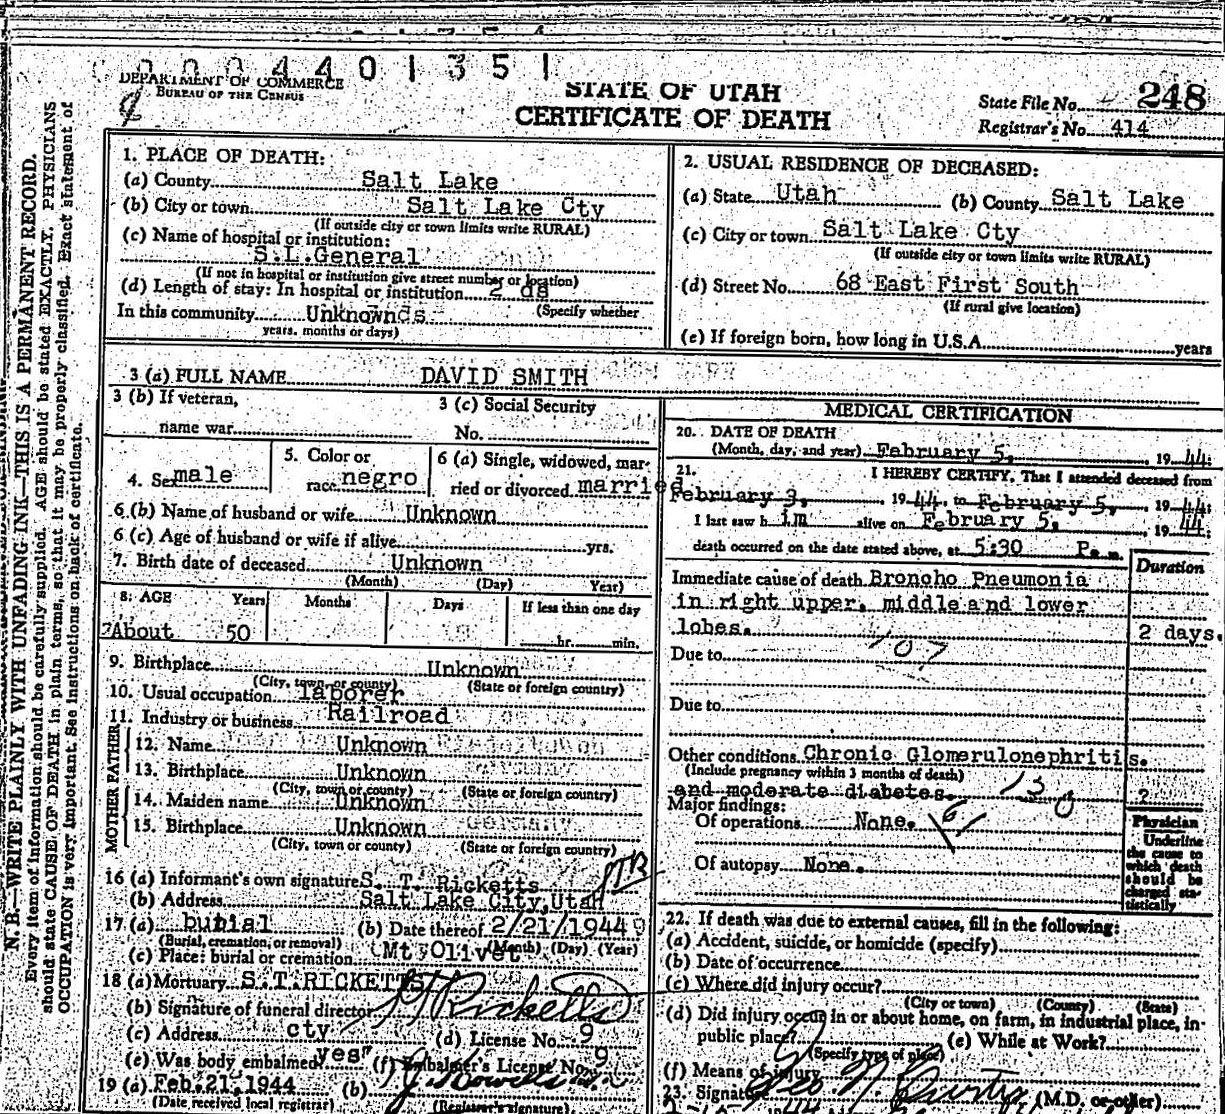 0004401351
DEPARTMENT OF COMMERCE
BUREAU OF THE CENSUS
STATE OF UTAH
CERTIFICATE OF DEATH
State File No. 248
Registrar's No. 414
N. B.—WRITE PLAINLY WITH UNFADING INK—THIS IS A PERMANENT RECORD.
Every item of information should be carefully supplied. AGE should be stated EXACTLY. PHYSICIANS
should state CAUSE OF DEATH in plain terms, so that it may be properly classified. Exact statement of
OCCUPATION is very important. See instructions on back of certificate.
1. PLACE OF DEATH:
(a) County Salt Lake
(b) City or town Salt Lake Cty
(If outside city or town limits write RURAL)
(c) Name of hospital or institution:
S.L.General
(If not in hospital or institution give street number or location)
(d) Length of stay: In hospital or institution 2 ds
(Specify whether
In this community Unknownds
years, months or days)
2. USUAL RESIDENCE OF DECEASED:
(a) State Utah (b) County Salt Lake
(c) City or town Salt Lake Cty
(If outside city or town limits write RURAL)
(d) Street No. 68 East First South
(If rural give location)
(e) If foreign born, how long in U.S.A. years
3 (a) FULL NAME DAVID SMITH
3 (b) If veteran,
name war
3 (c) Social Security
No.
4. Sex male
5. Color or
race negro
6 (a) Single, widowed, mar-
ried or divorced married
6 (b) Name of husband or wife Unknown
6 (c) Age of husband or wife if alive yrs.
7. Birth date of deceased Unknown
(Month) (Day) Year)
8. AGE Years Months Days If less than one day
?About 50 hr. min.
9. Birthplace Unknown
(City, town, or county) (State or foreign country)
10. Usual occupation laborer
11. Industry or business Railroad
FATHER
12. Name Unknown
13. Birthplace Unknown
(City, town or county) (State or foreign country)
MOTHER
14. Maiden name Unknown
15. Birthplace Unknown Germany
(City, town or county) (State or foreign country)
16 (a) Informant's own signature S. T. Ricketts
(b) Address Salt Lake City,Utah
17 (a) burial (b) Date thereof 2/21/1944
(Burial, cremation, or removal) (Month) (Day) (Year)
(c) Place: burial or cremation Mt Olivet
18 (a) Mortuary S.T.RICKETTS
(b) Signature of funeral director S T Ricketts
(c) Address cty (d) License No. 9
(e) Was body embalmed yes" (f) Embalmer's License No. 9
19 (a) Feb.21.1944 (b)
(Date received local registrar) (Registrar's signature)
MEDICAL CERTIFICATION
20. DATE OF DEATH
(Month, day, and year) February 5, 19 44:
21. I HEREBY CERTIFY, That I attended deceased from
February 3, 19 44, to February 5, 19 44:
I last saw h im alive on February 5, 19 44:
death occurred on the date stated above, at 5:30 P. m.
Duration
Immediate cause of death Broncho Pneumonia
in right upper, middle and lower
lobes. 2 days.
107
Due to
Due to
Other conditions Chronic Glomerulonephritis.
(Include pregnancy within 3 months of death)
and moderate diabetes. 130 ?
Major findings:
Of operations None. 61
Of autopsy None.
Physician
Underline
the cause to
which death
should be
charged sta-
tistically
22. If death was due to external causes, fill in the following:
(a) Accident, suicide, or homicide (specify)
(b) Date of occurrence
(c) Where did injury occur?
(City or town) (County) (State)
(d) Did injury occur in or about home, on farm, in industrial place, in-
public place? (e) While at Work?
(Specify type of place)
(f) Means of injury
23. Signature (M.D. or other)